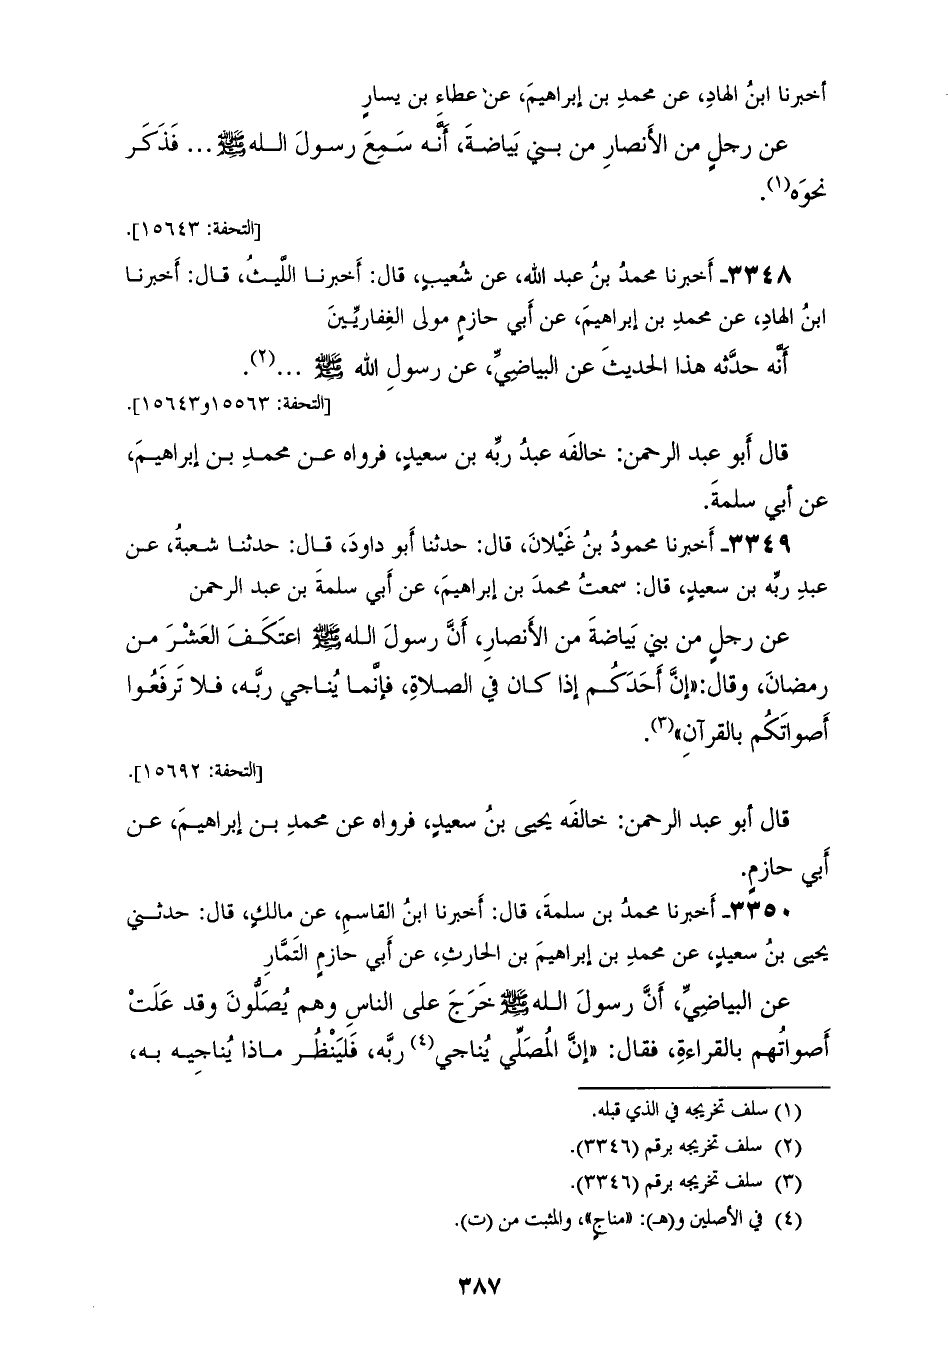 أخبرنا ابنُ الهادِ، عن محمدِ بن إبراهيمَ، عن عطاءِ بن يسارٍ
عن رجلٍ من الأَنصارِ من بني بَياضةَ، أَنَّه سَمِعَ رسولَ اللهﷺ... فَذَكَر
نحوَه(١).
[التحفة: ١٥٦٤٣].
٣٣٤٨ـ أَخبرنا محمدُ بنُ عبد الله، عن شُعيبٍ، قال: أَخبرنا اللَّيثُ، قال: أَخبرنا
ابنُ الهادِ، عن محمدِ بن إبراهيمَ، عن أَبي حازمٍ مولى الغِفاريِّينَ
أَنَّه حدَّثه هذا الحديثَ عن البياضيِّ، عن رسولِ الله ﷺ ...(٢).
[التحفة: ١٥٥٦٣و١٥٦٤٣].
قال أَبو عبد الرحمن: خالفَه عبدُ ربِّه بن سعيدٍ، فرواه عن محمدِ بن إبراهيمَ،
عن أَبي سلمةَ.
٣٣٤٩ـ أَخبرنا محمودُ بنُ غَيْلانَ، قال: حدثنا أَبو داودَ، قال: حدثنا شعبةُ، عن
عبدِ ربِّه بن سعيدٍ، قال: سمعتُ محمدَ بن إبراهيمَ، عن أَبي سلمةَ بن عبد الرحمن
عن رجلٍ من بني بَياضةَ من الأَنصارِ، أَنَّ رسولَ اللهﷺ اعتَكَفَ العَشْرَ من
رمضانَ، وقال:«إنَّ أَحَدَكُم إذا كان في الصلاةِ، فإنَّما يُناجي ربَّه، فلا تَرفَعُوا
أَصواتَكُم بالقرآنِ»(٣).
[التحفة: ١٥٦٩٢].
قال أبو عبد الرحمن: خالفَه يحيى بنُ سعيدٍ، فرواه عن محمدِ بن إبراهيمَ، عن
أَبي حازمٍ.
٣٣٥٠ـ أَخبرنا محمدُ بن سلمةَ، قال: أَخبرنا ابنُ القاسمِ، عن مالكٍ، قال: حدثني
يحيى بنُ سعيدٍ، عن محمدِ بن إبراهيمَ بن الحارثِ، عن أَبي حازمٍ التَمَّارِ
عن البياضيِّ، أَنَّ رسولَ اللهﷺ خَرَجَ على الناسِ وهم يُصَلُّونَ وقد عَلَتْ
أَصواتُهم بالقراءةِ، فقال: «إنَّ المُصَلِّي يُناجي(٤) ربَّه، فَليَنْظُر ماذا يُناجيه به،
(١) سلف تخريجه في الذي قبله.
(٢) سلف تخريجه برقم (٣٣٤٦).
(٣) سلف تخريجه برقم (٣٣٤٦).
(٤) في الأصلين و(هـ): «مناجٍ»، والمثبت من (ت).
٣٨٧